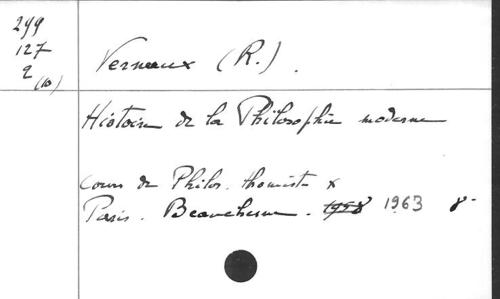 299
127
2
(10)
Verneaux (R.).
Histoire de la Philosophie moderne
Cours de Philos. thomiste x
Paris. Beauchesne. 1958 1963 8-